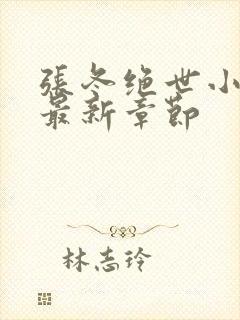 張冬绝世小
最新章節
林志玲